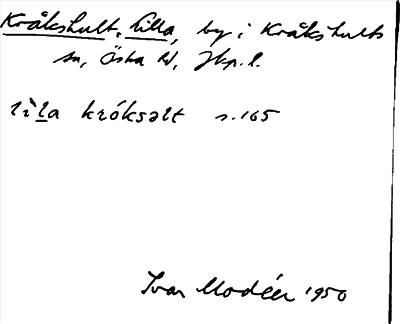 Kråkshult, lilla, by i Kråkshults
sn, Östra hd, Jkp. l.
lìla króksəlt s. 165
Ivar Modéer 1950